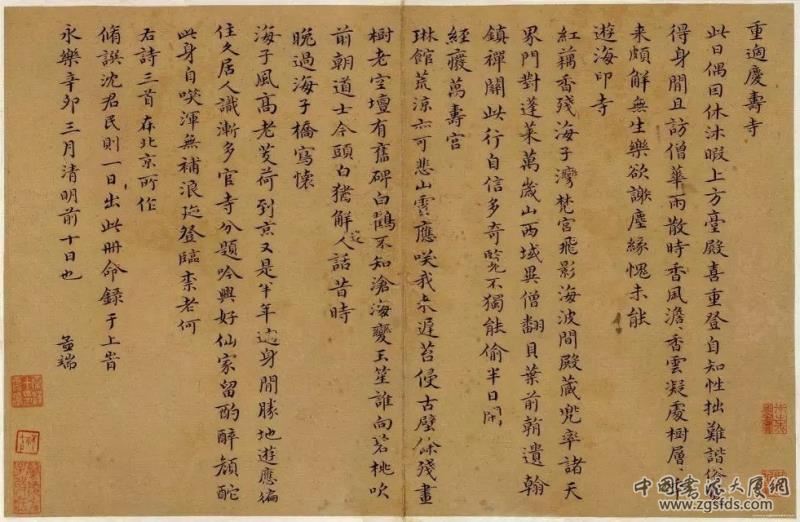 重過慶壽寺
此日偶因休沐暇上方臺殿喜重登自知性拙難諧俗
得身閒且訪僧華雨散時香風澹、香雲凝處樹層、
來頗解無生樂欲謝塵緣愧未能
遊海印寺
紅藕香殘海子灣梵宮飛影海波間殿藏兜率諸天
界門對蓬萊萬歲山西域異僧翻貝葉前朝遺翰
鎮禪關此行自信多奇覽不獨能偷半日閒
經廢萬壽宮
琳館荒涼亦可悲山雲應咲我来遲苔侵古壁餘殘畫
樹老空壇有舊碑白鶴不知滄海變玉笙誰向碧桃吹
前朝道士今頭白猶解逢人話昔時
晚過海子橋寫懷
海子風高老芰荷到京又是半年過身閒勝地遊應徧
住久居人識漸多官寺分題吟興好仙家留酌醉顏酡
此身自咲渾無補浪跡登臨柰老何
右詩三首在北京所作
脩譔沈君民則一日出此冊命錄于上旹
永樂辛卯三月清明前十日也 孟端
中國書法大厦網
www.zgsfds.com